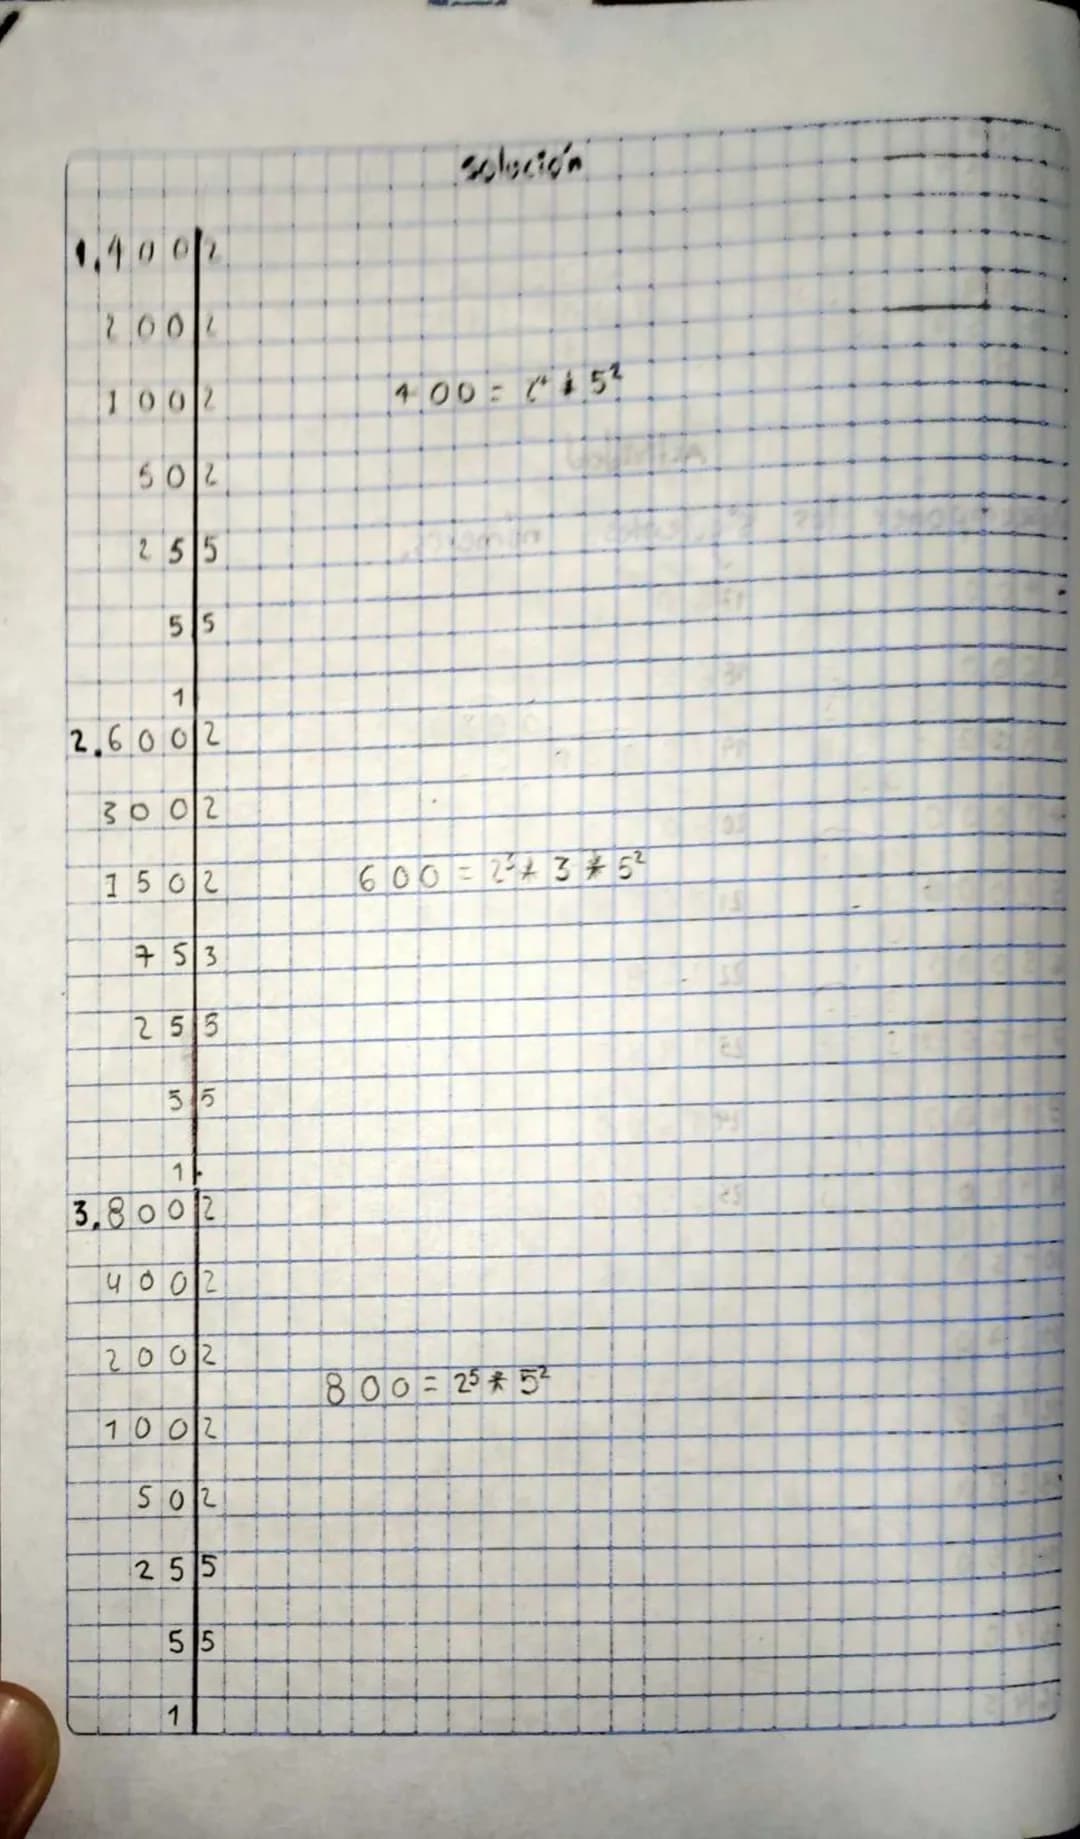 solución
1. 400|2
200|2
100|2
400 = 2⁴ * 5²
50|2
25|5
5|5
1
2. 600|2
300|2
150|2
600 = 2³ * 3 * 5²
75|3
25|5
5|5
1
3. 800|2
400|2
200|2
800 = 2⁵ * 5²
100|2
50|2
25|5
5|5
1